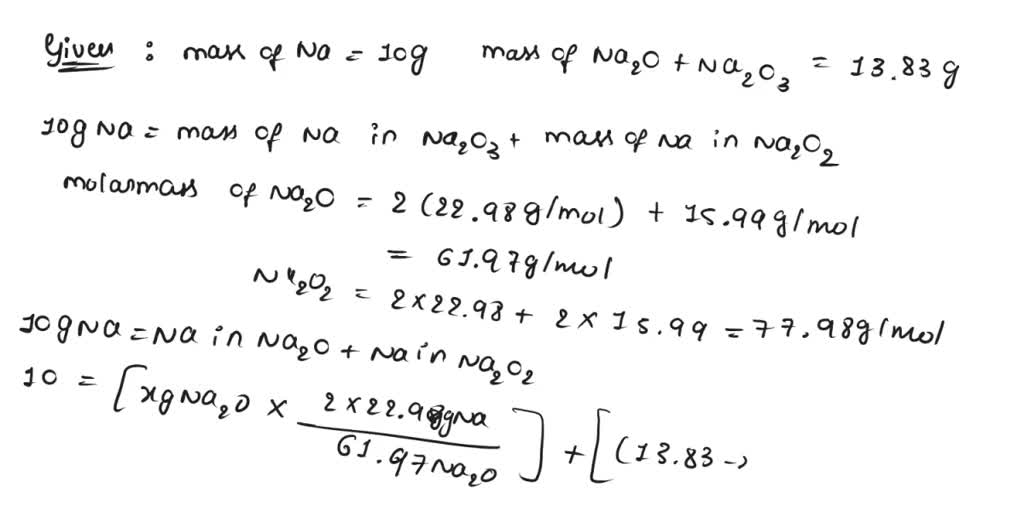 Given : mass of Na = 10g mass of Na₂O + Na₂O₃ = 13.83 g
10g Na = mass of Na in Na₂O₃ + mass of Na in Na₂O₂
molarmass of Na₂O = 2 (22.98g/mol) + 15.99g/mol
= 61.97g/mol
Na₂O₂ = 2×22.98 + 2×15.99 = 77.98g/mol
10gNa = Na in Na₂O + Na in Na₂O₂
10 = [xgNa₂O × 2×22.98gNa / 61.97Na₂O] + [(13.83 -